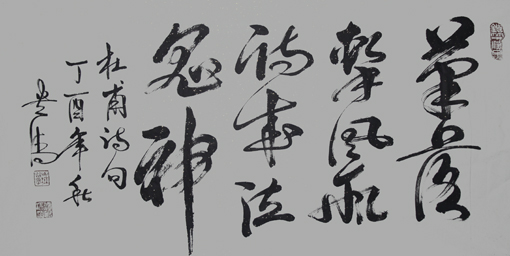 筆落
驚風雨
詩成泣
鬼神
杜甫詩句
丁酉年秋